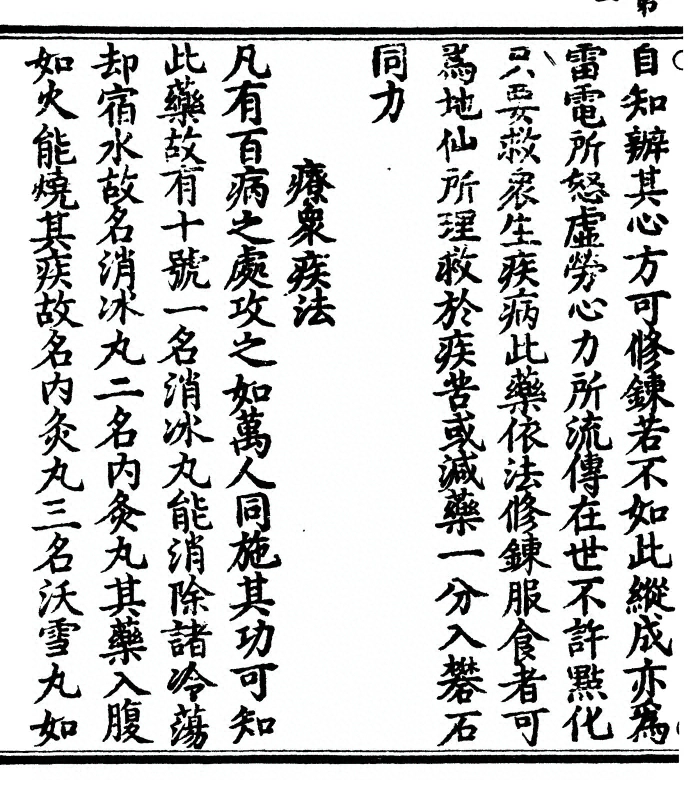 自知辦其心方可修鍊若不如此縱成亦爲
雷電所怒虛勞心力所流傳在世不許點化
只要救衆生疾病此藥依法修鍊服食者可
爲地仙所理救於疾苦或減藥一分入礬石
同力
療衆疾法
凡有百病之處攻之如萬人同施其功可知
此藥故有十號一名消冰丸能消除諸冷蕩
却宿水故名消冰丸二名內灸丸其藥入腹
如火能燒其疾故名內灸丸三名沃雪丸如